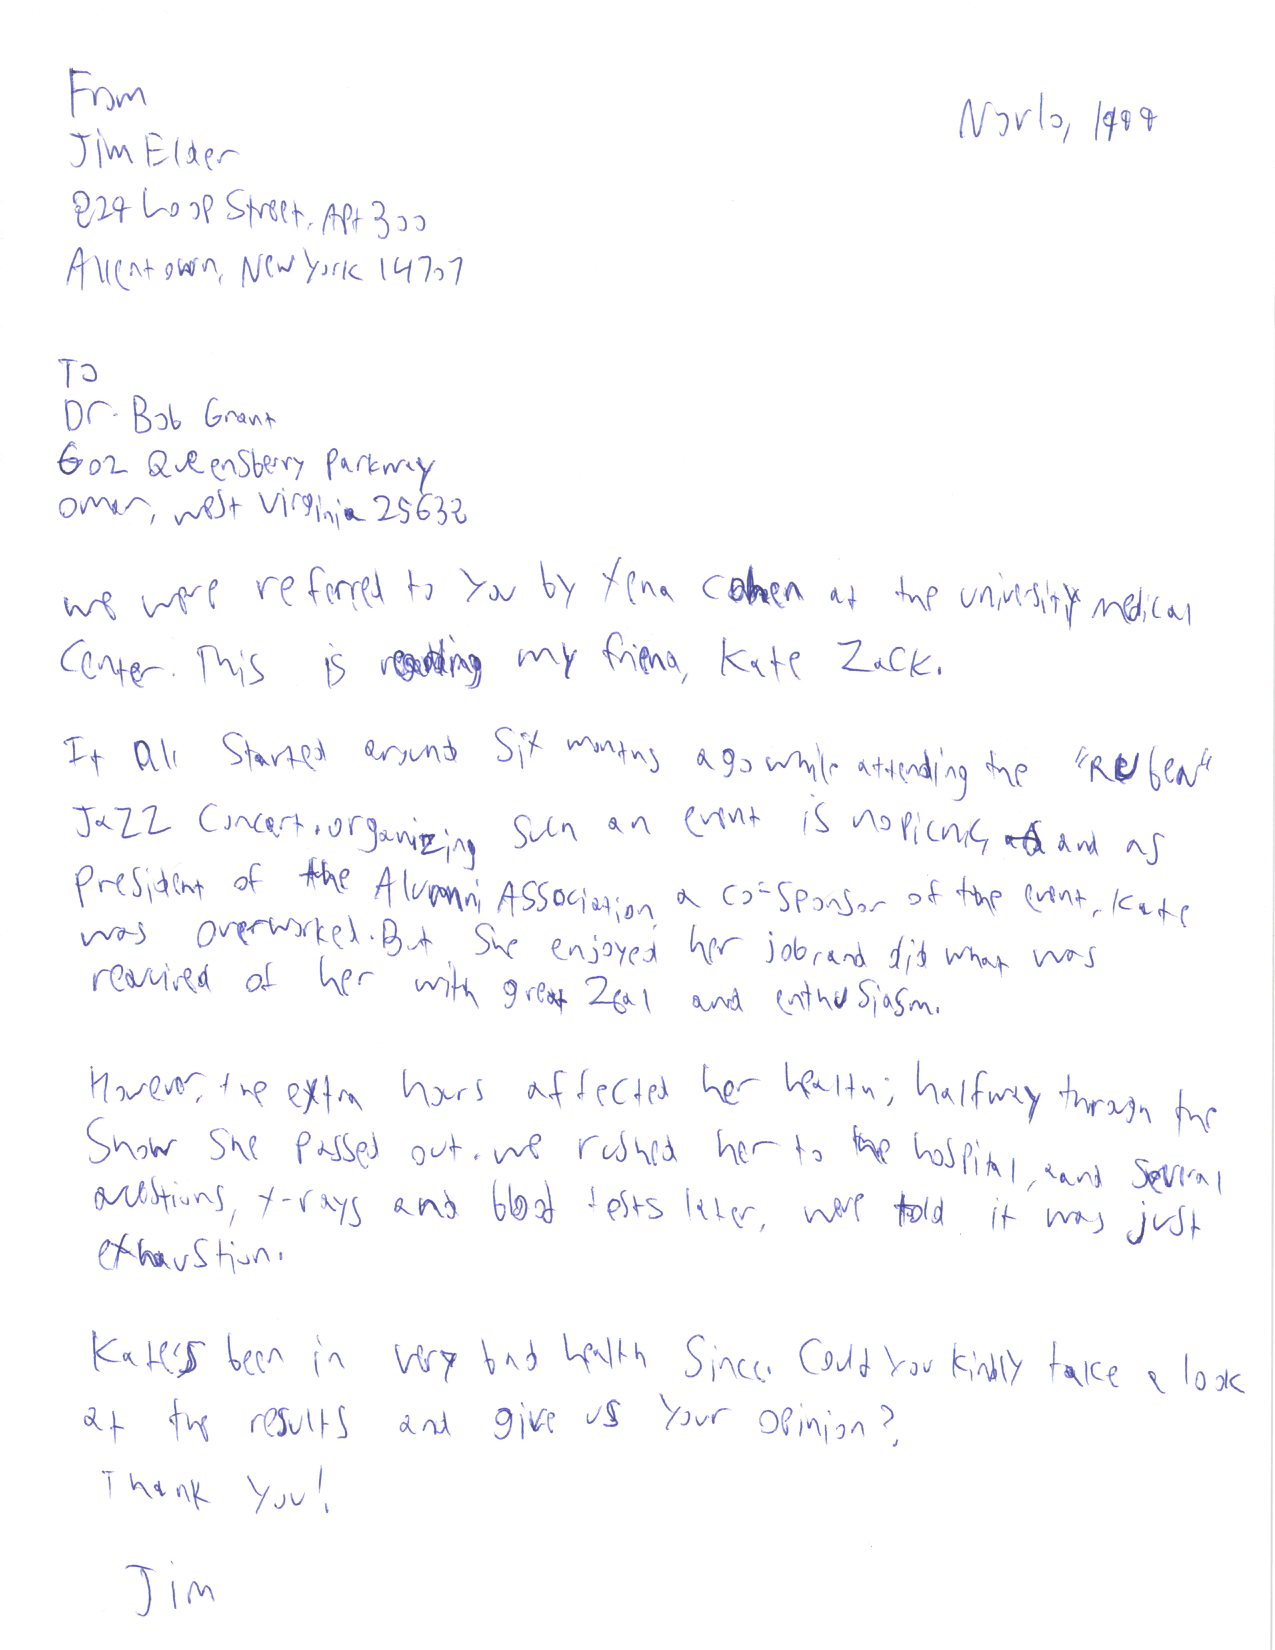 From
Nov 10, 1999
Jim Elder
829 Loop Street, Apt 300
Allentown, New York 14707
To
Dr. Bob Grant
602 Queensberry Parkway
Omar, West Virginia 25638
We were referred to you by Xena Cohen at the University Medical
Center. This is regarding my friend, Kate Zack.
It all started around six months ago while attending the "Rubeq"
Jazz Concert. Organizing such an event is no picnic, and as
President of the Alumni Association, a co-sponsor of the event, Kate
was overworked. But she enjoyed her job, and did what was
required of her with great zeal and enthusiasm.
However, the extra hours affected her health; halfway through the
show she passed out. We rushed her to the hospital, and several
questions, x-rays and blood tests later, were told it was just
exhaustion.
Kate's been in very bad health since. Could you kindly take a look
at the results and give us your opinion?
Thank you!
Jim